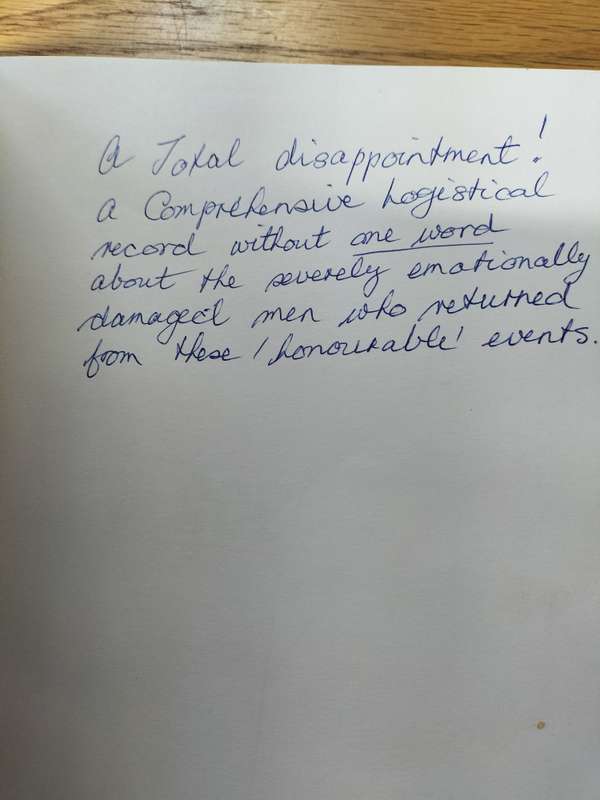 A Total disappointment!
a Comprehensive Logistical
record without one word
about the severely emotionally
damaged men who returned
from these 'honourable' events.